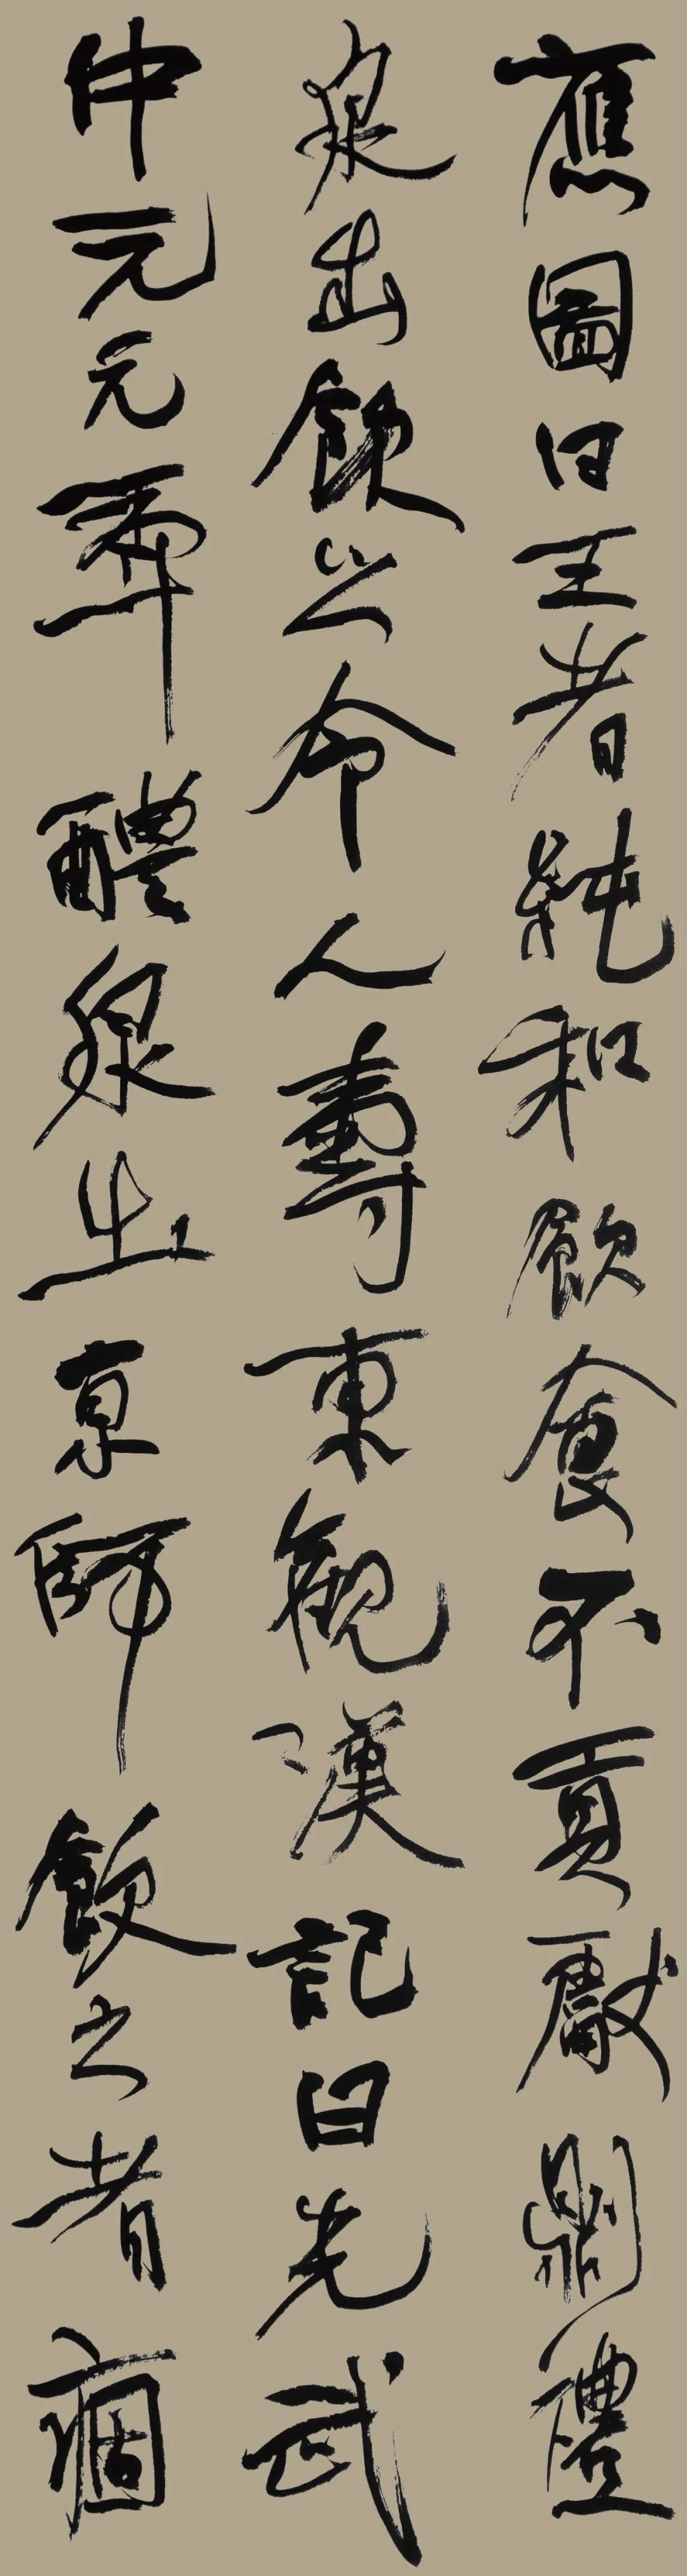 應圖曰王者純和飲食不貢獻則醴
泉出飲之令人壽東觀漢記曰光武
仲元元年醴泉出京師飲之者痼